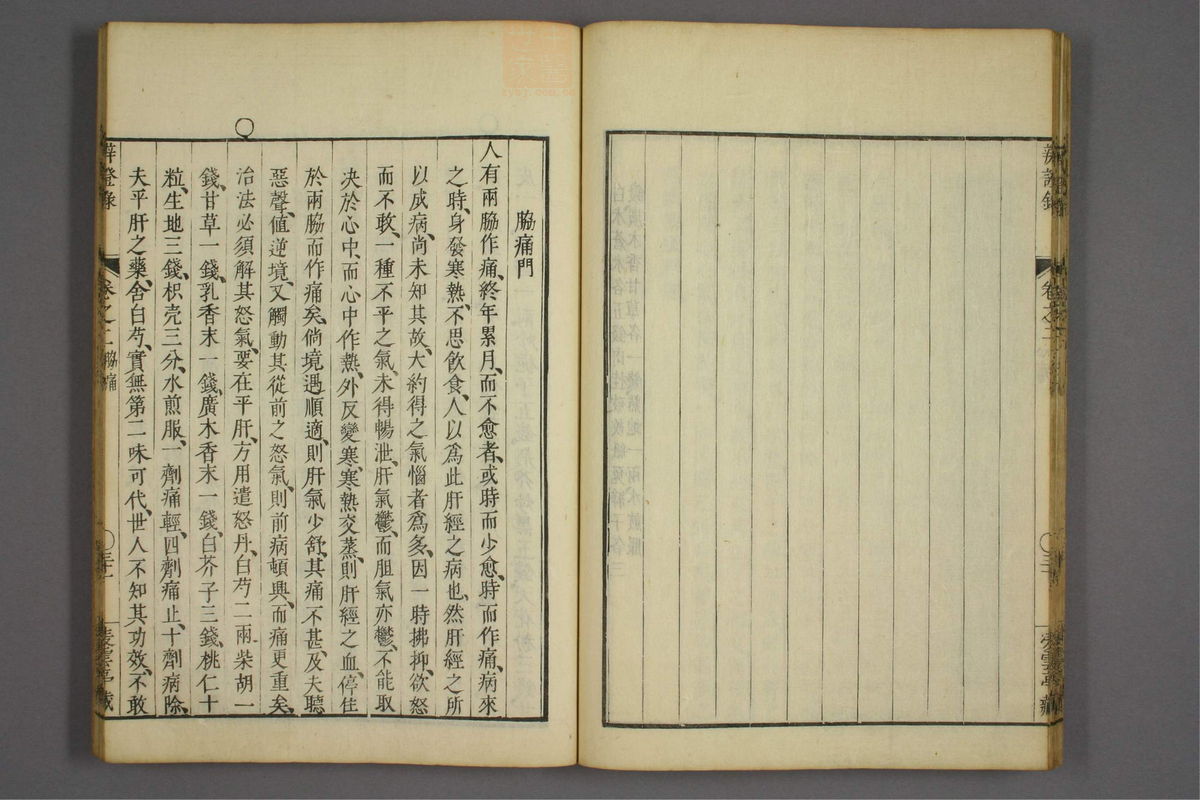 脇痛門
人有兩脇作痛、終年累月、而不愈者、或時而少愈、時而作痛、病來
之時、身發寒熱、不思飲食、人以爲此肝經之病也、然肝經之所
以成病、尚未知其故、大約得之氣惱者爲多、因一時拂抑、欲怒
而不敢、一種不平之氣、未得暢泄、肝氣鬱、而胆氣亦鬱、不能取
决於心中、而心中作熱、外反變寒、寒熱交蒸、則肝經之血、停住
於兩脇而作痛矣、倘境遇順適、則肝氣少舒、其痛不甚、及夫聽
惡聲、値逆境、又觸動其從前之怒氣、則前病頓興、而痛更重矣、
治法必須解其怒氣、要在平肝、方用遣怒丹、白芍二兩柴胡一
錢、甘草一錢、乳香末一錢、廣木香末一錢、白芥子三錢、桃仁十
粒、生地三錢、枳壳三分、水煎服、一劑痛輕、四劑痛止、十劑病除、
夫平肝之藥、舍白芍、實無第二味可代、世人不知其功效、不敢
卷之二 脇痛